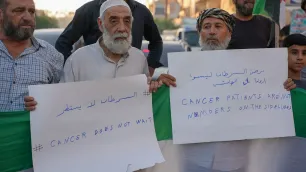 # السرطان لا ينتظر
# CANCER DOES NOT WAIT
مرضى السرطان ليسوا
CANCER PATIENTS ARE NOT
NUMBERS ON THE SIDELINES